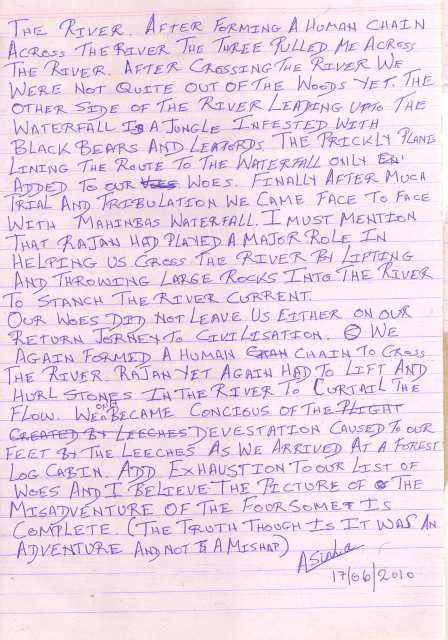 THE RIVER. AFTER FORMING A HUMAN CHAIN
ACROSS THE RIVER THE THREE PULLED ME ACROSS
THE RIVER. AFTER CROSSING THE RIVER WE
WERE NOT QUITE OUT OF THE WOODS YET. THE
OTHER SIDE OF THE RIVER LEADING UPTO THE
WATERFALL IS A JUNGLE INFESTED WITH
BLACK BEARS AND LEAPORDS. THE PRICKLY PLANTS
LINING THE ROUTE TO THE WATERFALL ONLY
ADDED TO OUR WOES. FINALLY AFTER MUCH
TRIAL AND TRIBULATION WE CAME FACE TO FACE
WITH MAHINBAS WATERFALL. I MUST MENTION
THAT RAJAN HAD PLAYED A MAJOR ROLE IN
HELPING US CROSS THE RIVER BY LIFTING
AND THROWING LARGE ROCKS INTO THE RIVER
TO STANCH THE RIVER CURRENT.
OUR WOES DID NOT LEAVE US EITHER ON OUR
RETURN JORNEY TO CIVILISATION. WE
AGAIN FORMED A HUMAN CHAIN TO CROSS
THE RIVER. RAJAN YET AGAIN HAD TO LIFT AND
HURL STONES IN THE RIVER TO CURTAIL THE
FLOW. WE ONLY BECAME CONCIOUS OF THE PLIGHT
CREATED BY LEECHES DEVESTATION CAUSED TO OUR
FEET BY THE LEECHES AS WE ARRIVED AT A FOREST
LOG CABIN. ADD EXHAUSTION TO OUR LIST OF
WOES AND I BELIEVE THE PICTURE OF THE
MISADVENTURE OF THE FOURSOMET IS
COMPLETE. (THE TRUTH THOUGH IS IT WAS AN
ADVENTURE AND NOT A MISHAP)
ASinha
17/06/2010